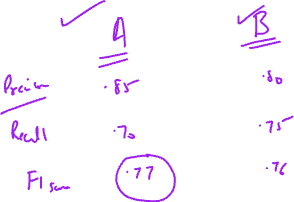 A B
Precision .85 .80
Recall .70 .75
F1 score .77 .76